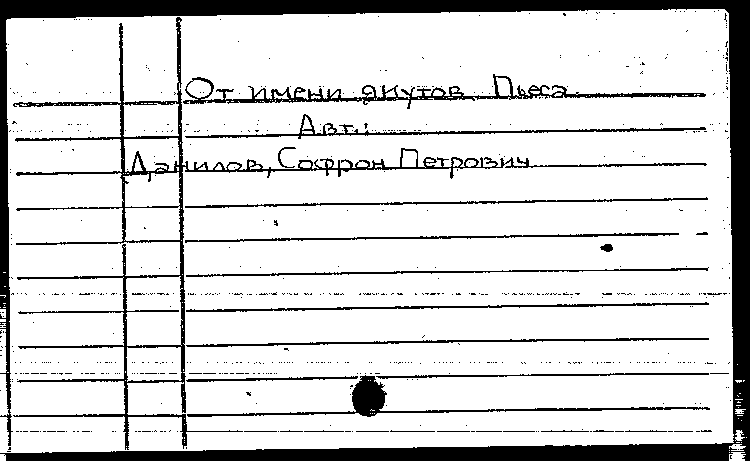 От имени якутов. Пьеса.
Авт.:
Данилов, Софрон Петрович